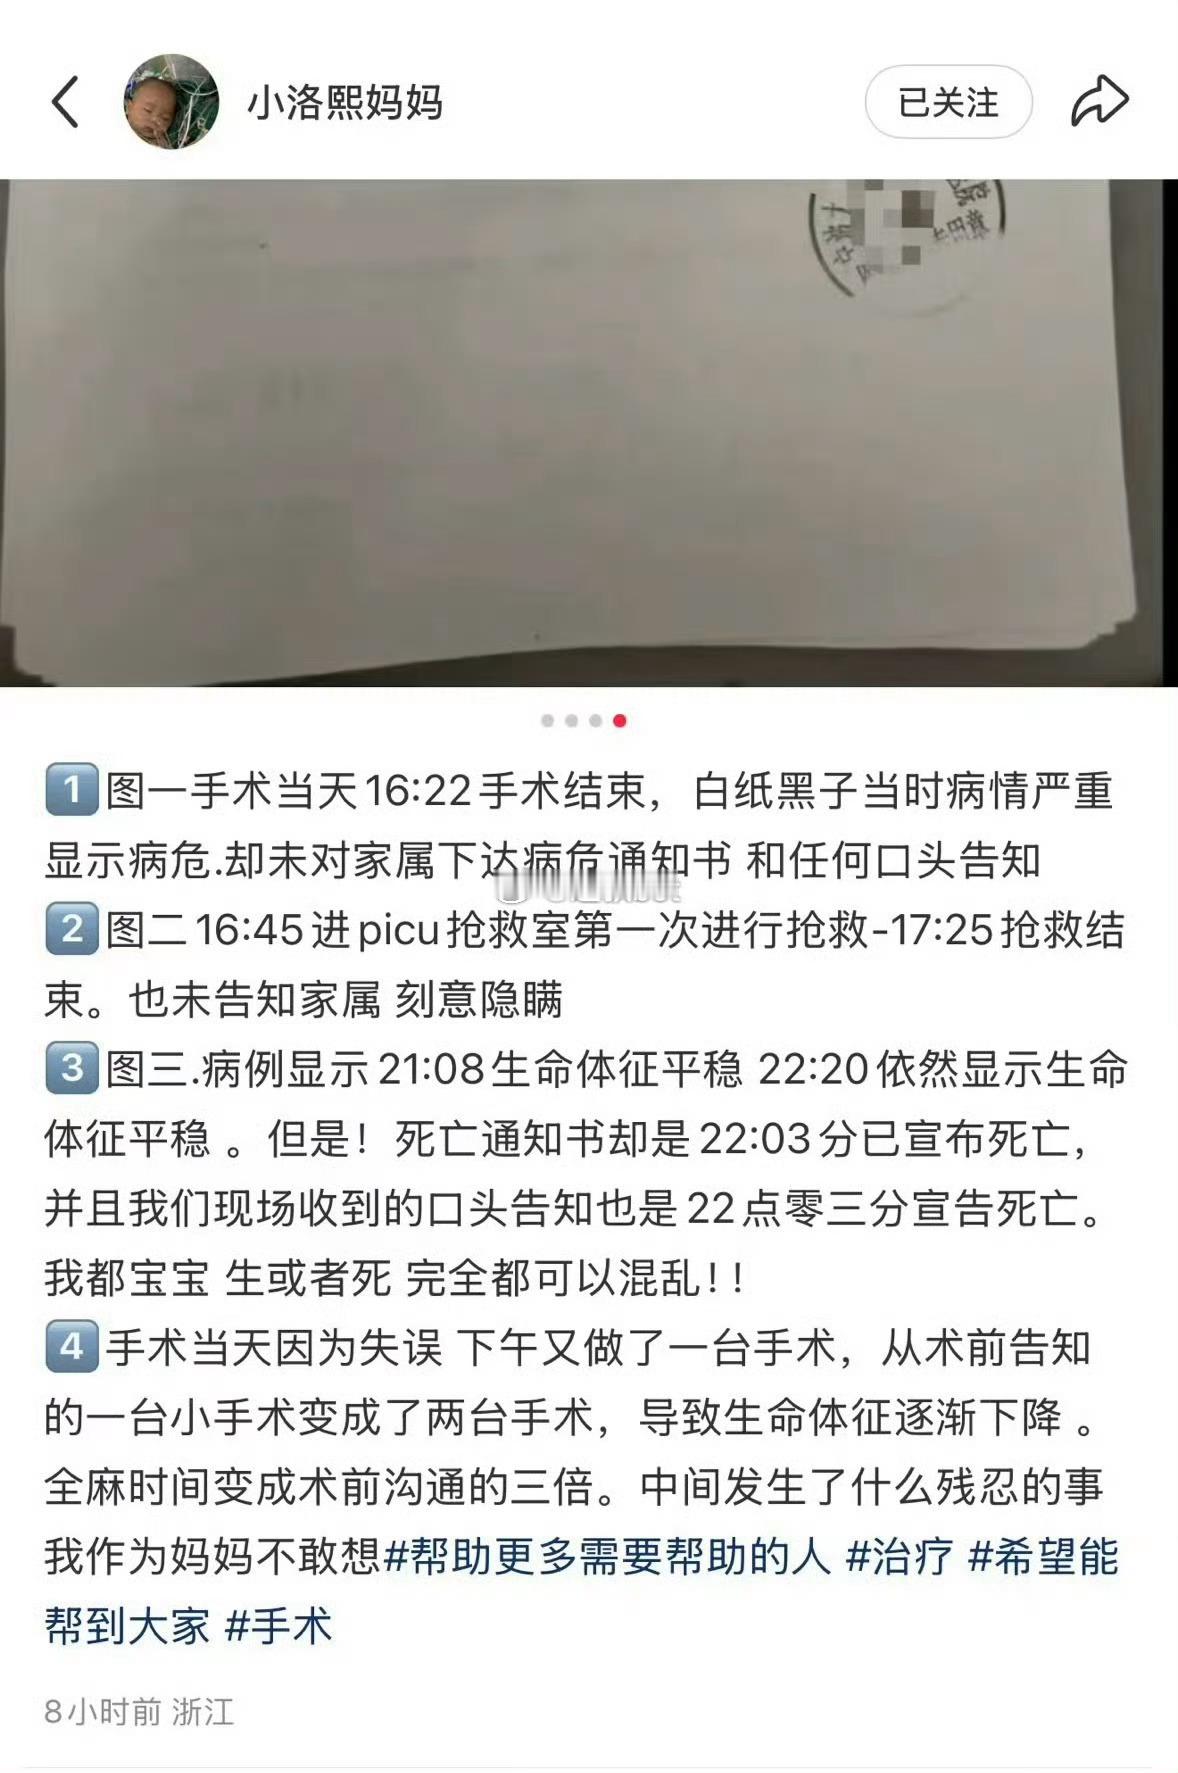 小洛熙妈妈
已关注
1图一手术当天16:22手术结束，白纸黑子当时病情严重
显示病危.却未对家属下达病危通知书 和任何口头告知
2图二16:45进picu抢救室第一次进行抢救-17:25抢救结
束。也未告知家属 刻意隐瞒
3图三.病例显示21:08生命体征平稳 22:20依然显示生命
体征平稳 。但是！死亡通知书却是22:03分已宣布死亡，
并且我们现场收到的口头告知也是22点零三分宣告死亡。
我都宝宝 生或者死 完全都可以混乱！！
4手术当天因为失误 下午又做了一台手术，从术前告知
的一台小手术变成了两台手术，导致生命体征逐渐下降 。
全麻时间变成术前沟通的三倍。中间发生了什么残忍的事
我作为妈妈不敢想#帮助更多需要帮助的人 #治疗 #希望能
帮到大家 #手术
8小时前 浙江